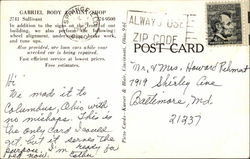 GABRIEL BODY
2781 Sullivant
In addition to the
building, we also perform the following:
wheel alignment,
and tune ups.
Also provided, are loan cars while your
wrecked car is being repaired.
Fast efficient service at lowest prices.
Free estimates.
ALWAYS USE
ZIP CODE
POST CARD
Hi
We made it to
Columbus, Ohio with
no mishaps. This is
the only card I could
get, but it serves the
purpose. I'm ready for
bed now.
Mr, & Mrs. Howard
1919 Shirley Ave
Baltimore, Md.
21237